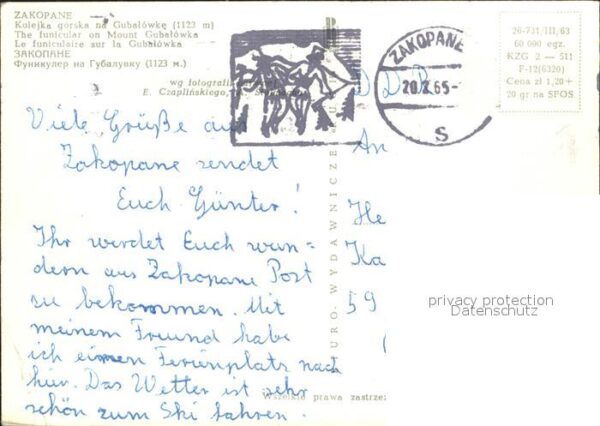 ZAKOPANE
Kolejka górska na Gubałówkę (1123 m)
The funicular on Mount Gubałówka
Le funiculaire sur la Gubałówka
ЗАКОПАНЕ
Фуникулер на Губалувку (1123 м.)
wg fotografii
E. Czaplińskiego,
ZAKOPANE
65-
S
26-731/III/63
60 000 egz.
KZG 2 — 511
F-12(6320)
Cena zł 1,20+
20 gr na SFOS
DDR
Viele Grüße aus
Zakopane sendet
Euch Günter!
Ihr werdet Euch wun=
dern aus Zakopane Post
zu bekommen. Mit
meinem Freund habe
ich einen Ferienplatz nach
hier. Das Wetter ist sehr
schön zum Ski fahren.
An
He
Ka
59
BIURO WYDAWNICZE
Wszelkie prawa zastrze
privacy protection
Datenschutz